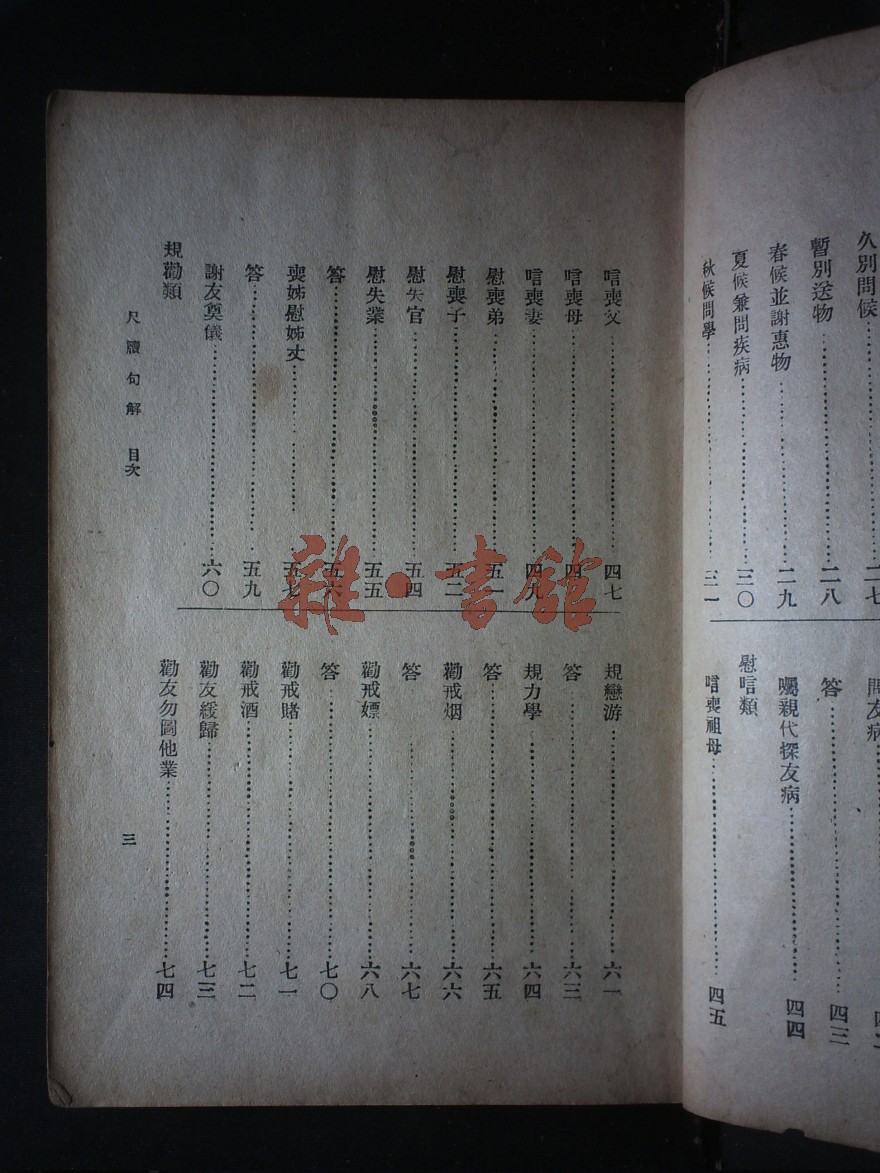 久別問候 二七
暫別送物 二八
春候並謝惠物 二九
夏候兼問疾病 三〇
秋候問學 三一
問友病
答 四三
囑親代探友病 四四
慰唁類
唁喪祖母 四五
唁喪父 四七
唁喪母
唁喪妻 四九
慰喪弟 五一
慰喪子 五二
慰失官 五四
慰失業 五五
答 五六
喪姊慰姊丈 五七
答 五九
謝友奠儀 六〇
規勸類
規戀游 六一
答 六三
規力學 六四
答 六五
勸戒烟 六六
答 六七
勸戒嫖 六八
答 七〇
勸戒賭 七一
勸戒酒 七二
勸友緩歸 七三
勸友勿圖他業 七四
尺牘句解 目次
三
雜·書館